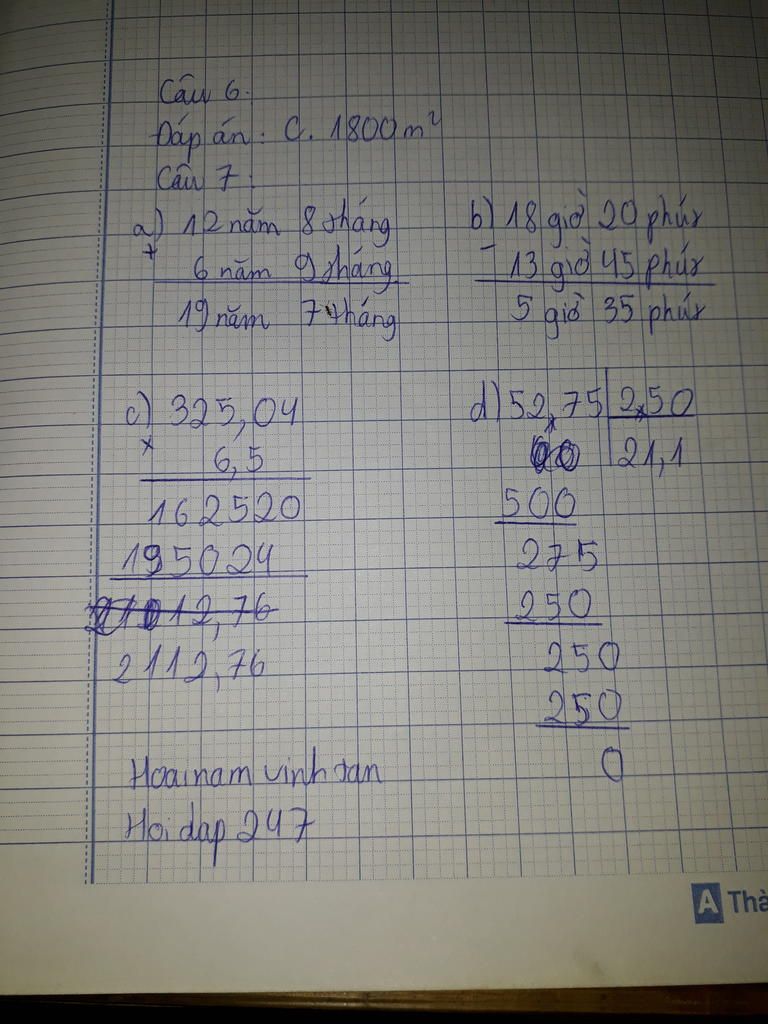 Câu 6.
Đáp án: C. 1800m²
Câu 7:
a) 12 năm 8 tháng
+
6 năm 9 tháng
19 năm 7 tháng
b) 18 giờ 20 phút
-
13 giờ 45 phút
5 giờ 35 phút
c) 325,04
x
6,5
162520
195024
2112,76
d) 52,75 2,50
21,1
500
275
250
250
250
0
Hoainam vinhtan
Hoi dap 247
A Thà